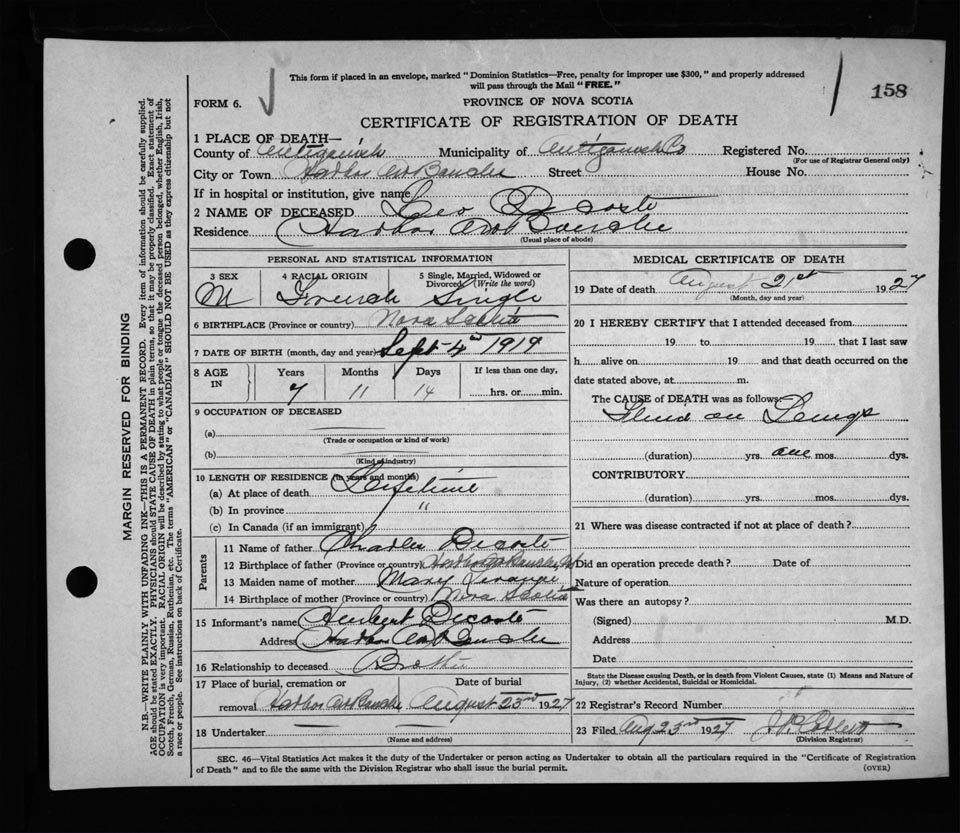 This form if placed in an envelope, marked " Dominion Statistics—Free, penalty for improper use $300," and properly addressed
will pass through the Mail "FREE."
158
FORM 6.
PROVINCE OF NOVA SCOTIA
CERTIFICATE OF REGISTRATION OF DEATH
1 PLACE OF DEATH—
County of Antigonish Municipality of Antigonish Co Registered No.
(For use of Registrar General only)
City or Town Harbor Au Bouche Street House No.
If in hospital or institution, give name
2 NAME OF DECEASED Leo Decoste
Residence Harbor Au Bouche
(Usual place of abode)
PERSONAL AND STATISTICAL INFORMATION
3 SEX 4 RACIAL ORIGIN 5 Single, Married, Widowed or
Divorced (Write the word)
M French Single
6 BIRTHPLACE (Province or country) Nova Scotia
7 DATE OF BIRTH (month, day and year) Sept 4th 1919
8 AGE IN Years Months Days If less than one day,
7 11 14 hrs. or min.
9 OCCUPATION OF DECEASED
(a)
(Trade or occupation or kind of work)
(b)
(Kind of industry)
10 LENGTH OF RESIDENCE (in years and months)
(a) At place of death Lifetime
(b) In province "
(c) In Canada (if an immigrant)
Parents
11 Name of father Charles Decoste
12 Birthplace of father (Province or country) Harbor Au Bouche
13 Maiden name of mother Mary
14 Birthplace of mother (Province or country) Nova Scotia
15 Informant's name Herbert Decoste
Address Harbor Au Bouche
16 Relationship to deceased Brother
17 Place of burial, cremation or Date of burial
removal Harbor Au Bouche August 23rd 1927
18 Undertaker
(Name and address)
MEDICAL CERTIFICATE OF DEATH
19 Date of death August 21st 1927
(Month, day and year)
20 I HEREBY CERTIFY that I attended deceased from
19 to 19 that I last saw
h alive on 19 and that death occurred on the
date stated above, at m.
The CAUSE of DEATH was as follows:
Fluid on Lungs
(duration) yrs. one mos. dys.
CONTRIBUTORY
(duration) yrs. mos. dys.
21 Where was disease contracted if not at place of death?
Did an operation precede death? Date of
Nature of operation
Was there an autopsy?
(Signed) M.D.
Address
Date
State the Disease causing Death, or in death from Violent Causes, state (1) Means and Nature of
Injury, (2) whether Accidental, Suicidal or Homicidal.
22 Registrar's Record Number
23 Filed Aug 23rd 1927
(Division Registrar)
SEC. 46—Vital Statistics Act makes it the duty of the Undertaker or person acting as Undertaker to obtain all the particulars required in the "Certificate of Registration
of Death" and to file the same with the Division Registrar who shall issue the burial permit.
(OVER)
MARGIN RESERVED FOR BINDING
N.B.—WRITE PLAINLY WITH UNFADING INK—THIS IS A PERMANENT RECORD. Every item of information should be carefully supplied.
AGE should be stated EXACTLY. PHYSICIANS should STATE CAUSE OF DEATH in plain terms, so that it may be properly classified. Exact statement of
OCCUPATION is very important. RACIAL ORIGIN will be described by stating to what people or tongue the deceased person belonged, whether English, Irish,
Scotch, French, German, Russian, Ruthenian, etc. The terms "AMERICAN" or "CANADIAN" SHOULD NOT BE USED as they express citizenship but not
a race or people. See instructions on back of Certificate.